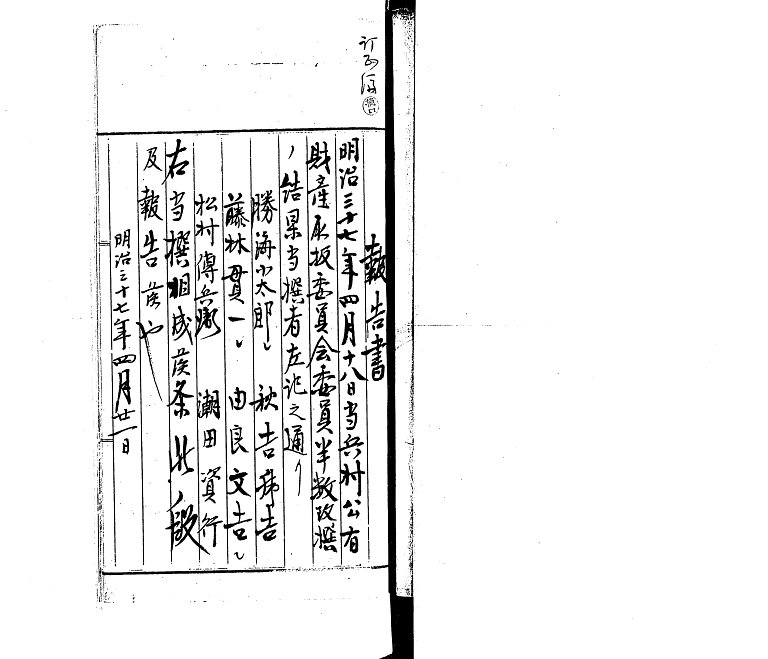 報告書
明治三十七年四月十八日当兵村公有
財産取扱委員会委員半数改撰
ノ結果当撰者左記之通リ
勝海小太郎 秋吉弥吉
藤林貫一 由良文吉
松村傳兵衛 潮田資行
右当撰相成候条此ノ段
及報告候也
明治三十七年四月廿一日